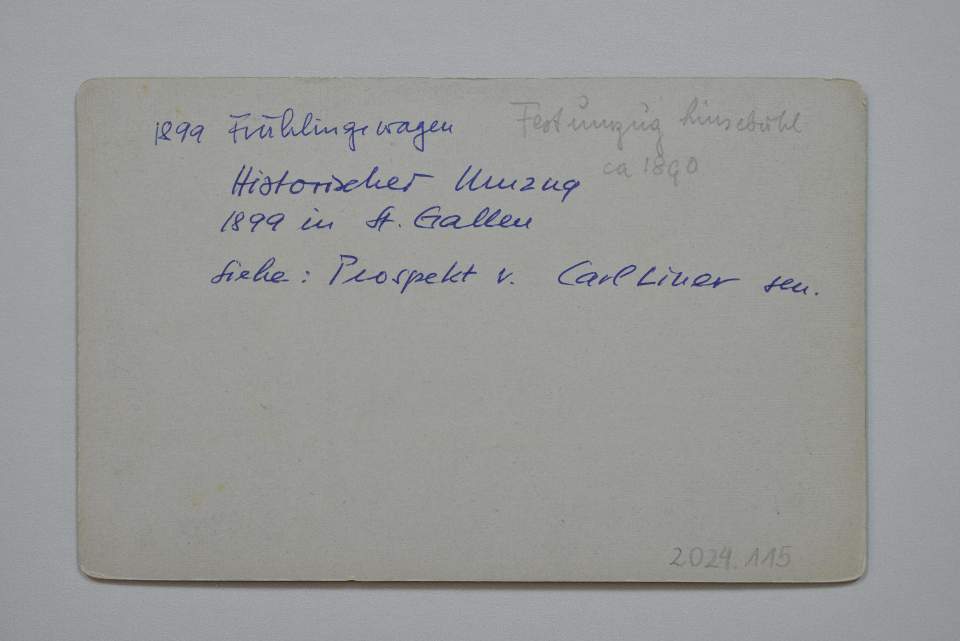 1899 Frühlingswagen
Festumzug Linsebühl
ca 1890
Historischer Umzug
1899 in St. Gallen
Siehe: Prospekt v. Carl Liner sen.
2024.115